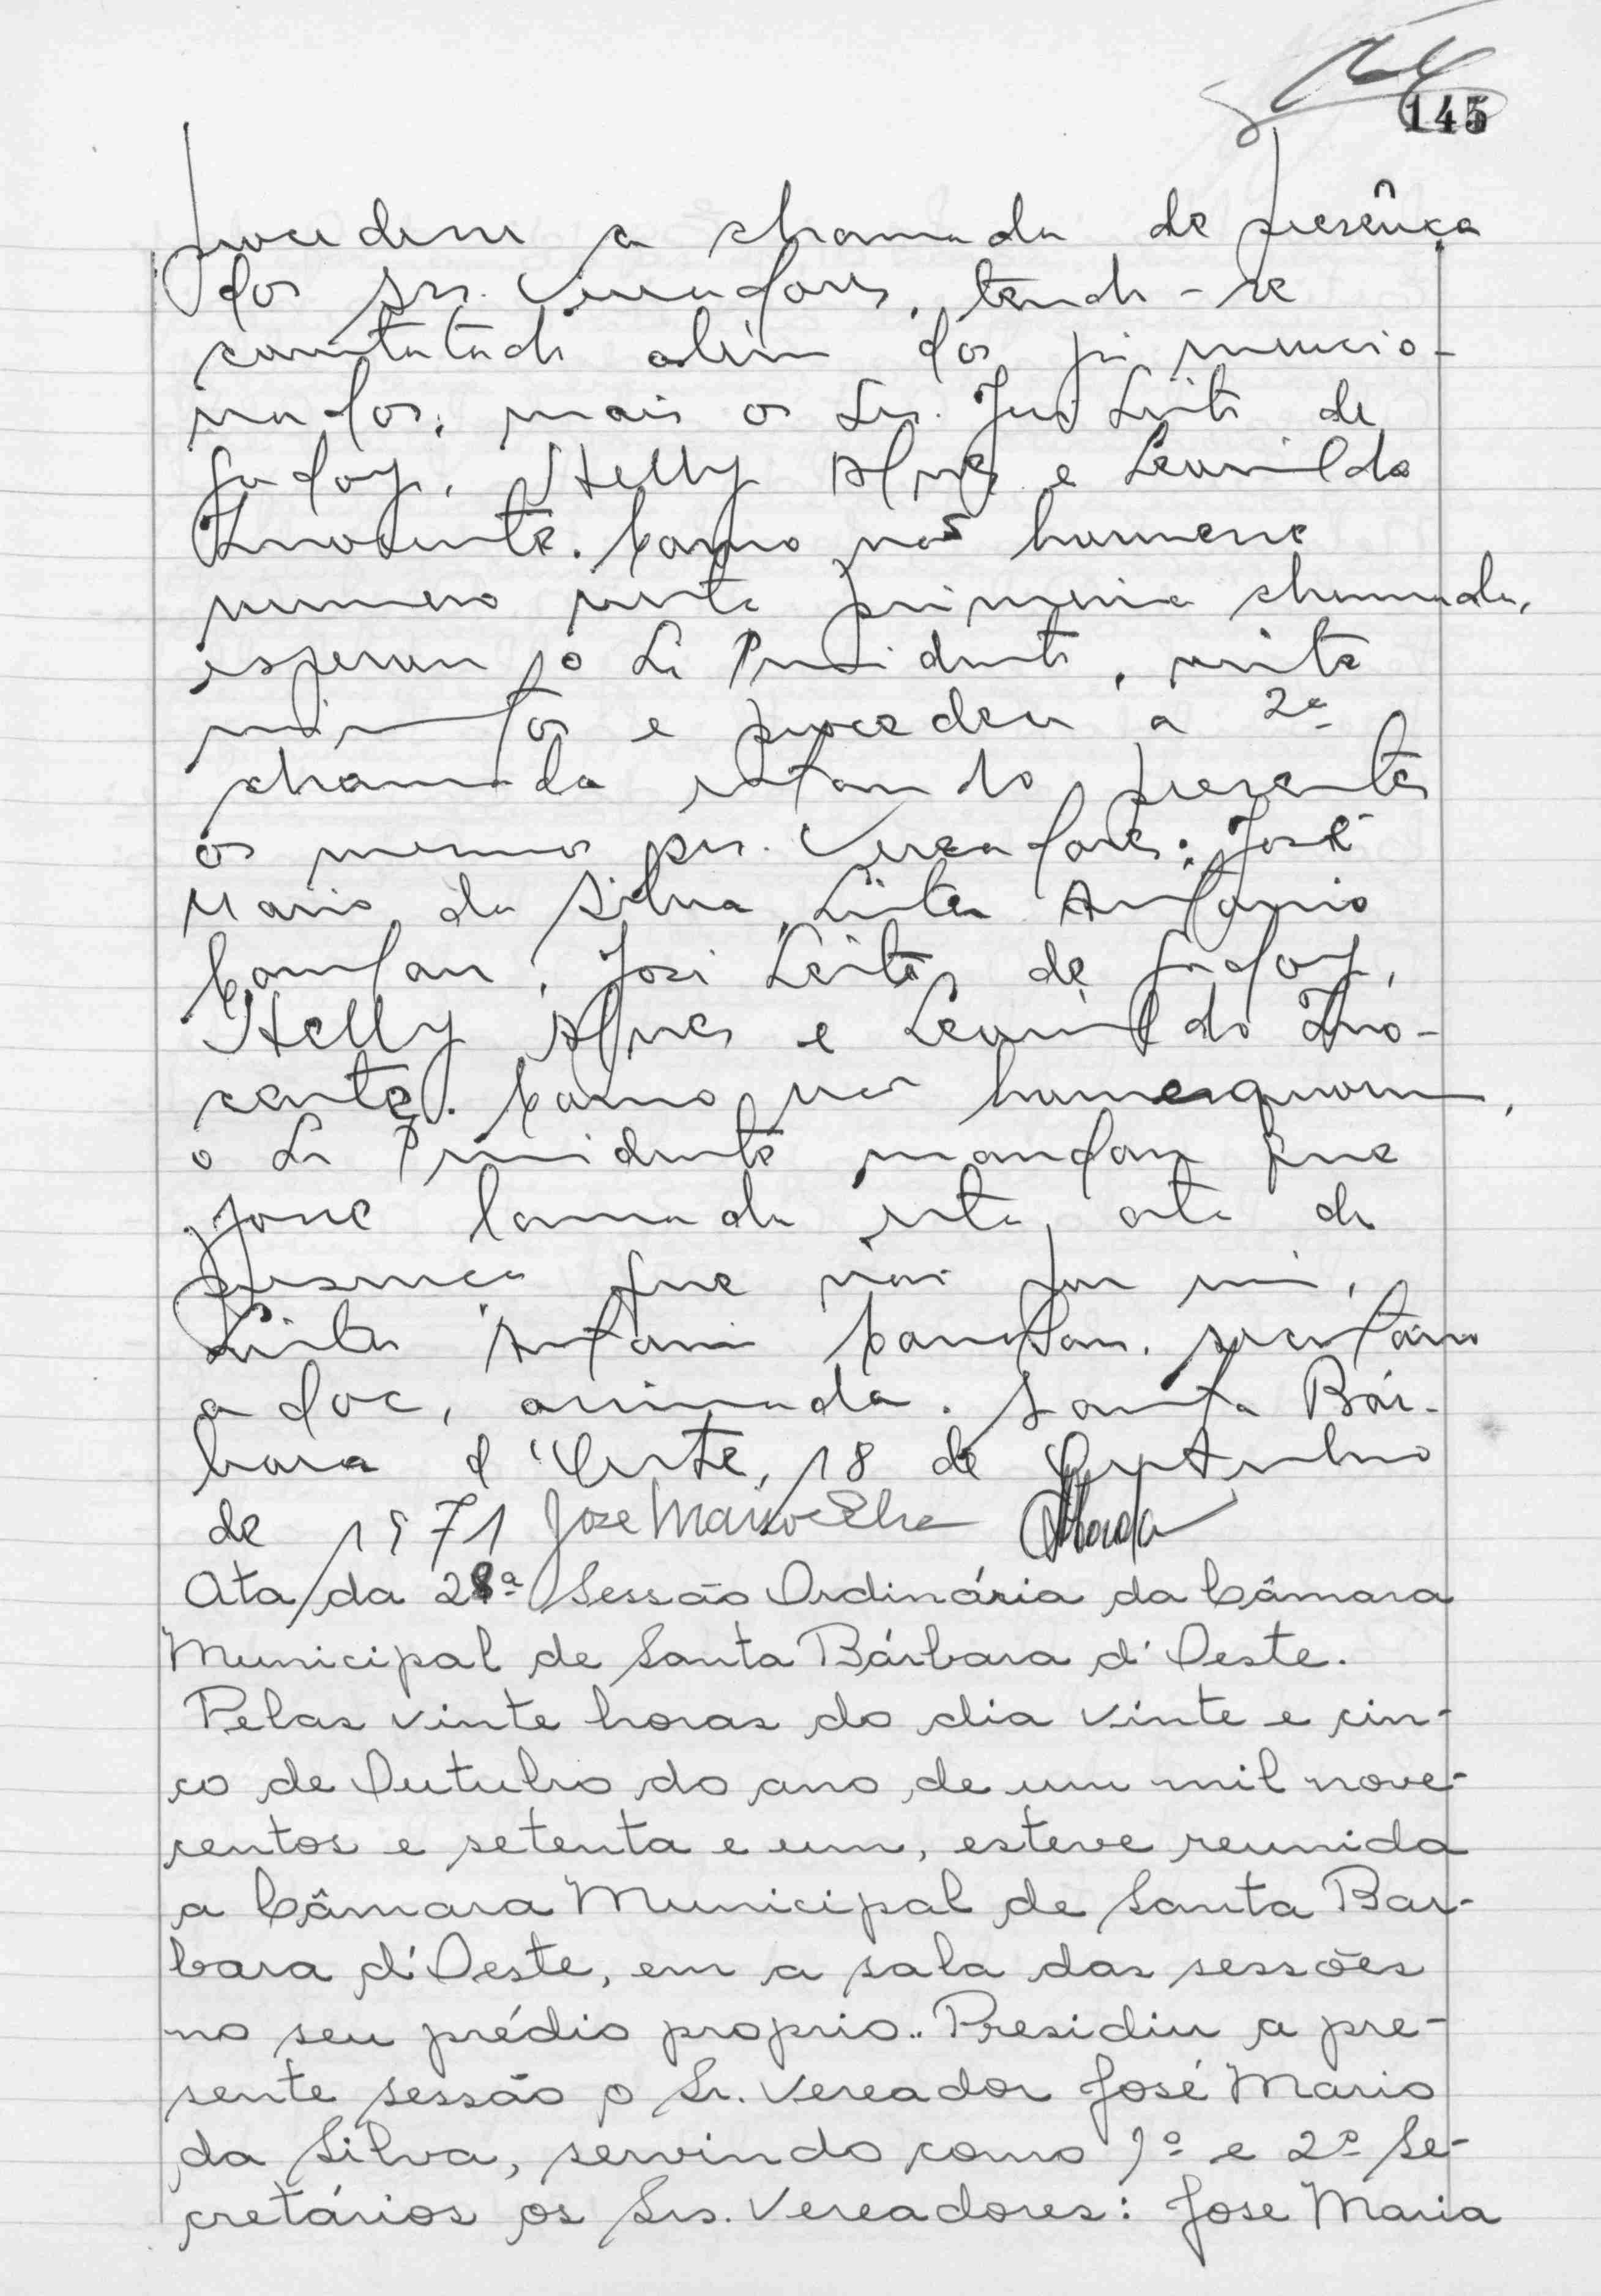 145
procedem a chamada de presênça
dos Srs. Vereadores, tendo-se
constatado além dos já mencio-
nados, mais os Srs. José Leite de
Godoy, Helly Alves e Leonildo
Inocente. Como não houvesse
numero nesta primeira chamada,
esperou o Sr Presidente, vinte
minutos e procedeu a 2ª
chamada estando presentes
os mesmos srs. Vereadores: José
Mario da Silva, Antonio
José Leite de Godoy,
Helly Alves e Leonildo Ino-
cente. Como não houvesse quorum,
o Sr Presidente mandou que
fosse lavrada esta ata de
presença que vai por mim,
Antonio secretário
adoc, assinada. Santa Bár-
bara d'Oeste, 18 de Outubro
de 1971 Jose Mario da Silva
Ata da 28ª Sessão Ordinária da Câmara
Municipal de Santa Bárbara d'Oeste.
Pelas vinte horas do dia vinte e cin-
co de Outubro do ano de um mil nove-
centos e setenta e um, esteve reunida
a Câmara Municipal de Santa Bar-
bara d'Oeste, em a sala das sessões
no seu prédio proprio.. Presidiu a pre-
sente sessão o Sr. Vereador José Mario
da Silva, servindo como 1º e 2º Se-
cretários os Srs. Vereadores: Jose Maria